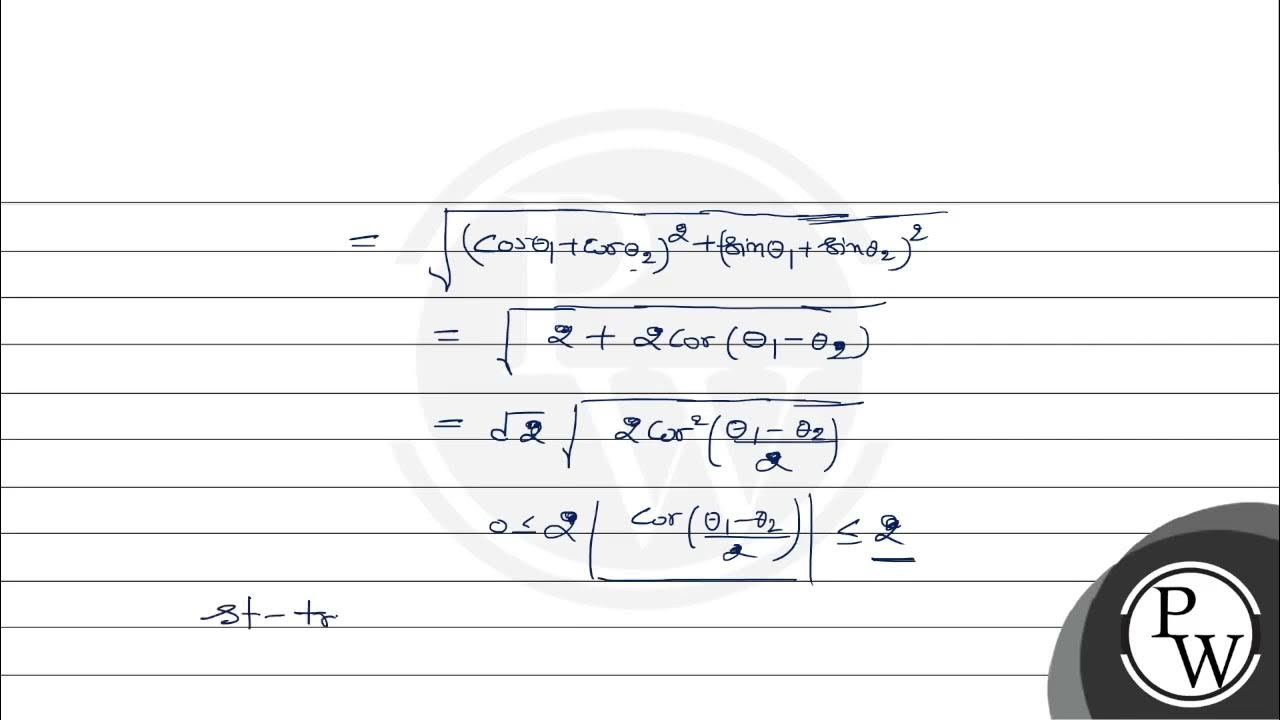 = √((cosθ₁+cosθ₂)²+(sinθ₁+sinθ₂)²)
= √(2+2cos(θ₁-θ₂))
= √2 √(2cos²((θ₁-θ₂)/2))
0≤2|cos((θ₁-θ₂)/2)|≤2
st-tr
P
W